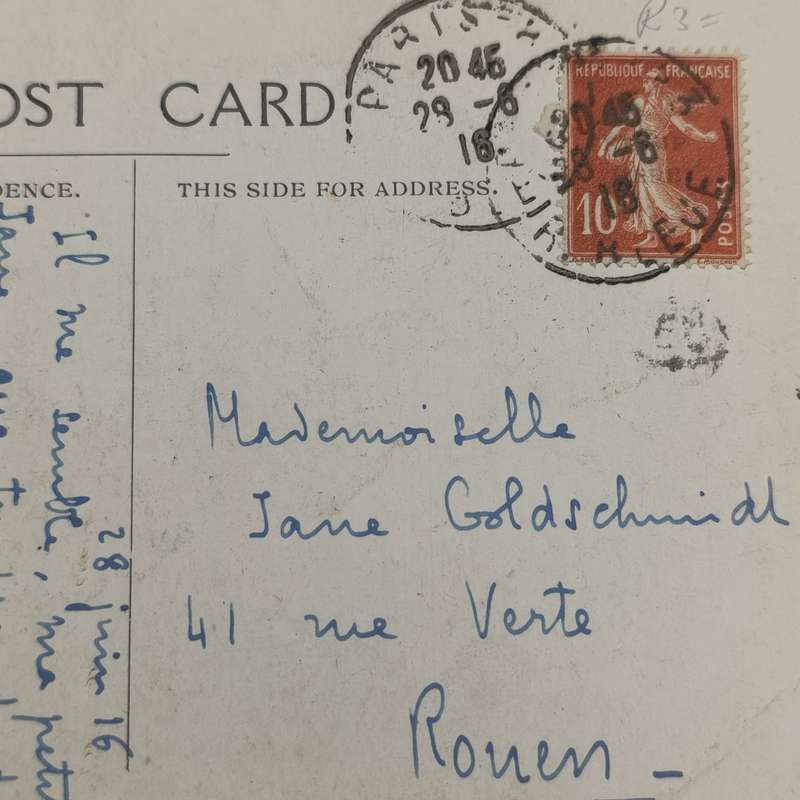 R3=
POST CARD
DENCE.
THIS SIDE FOR ADDRESS.
PARIS
20 45
28 -6
16
RÉPUBLIQUE FRANÇAISE
10
POSTES
20 45
28 -6
Mademoiselle
Jane Goldschmidt
41 rue Verte
Rouen
28 juin 16
Il me semble, ma petite
Jane, que